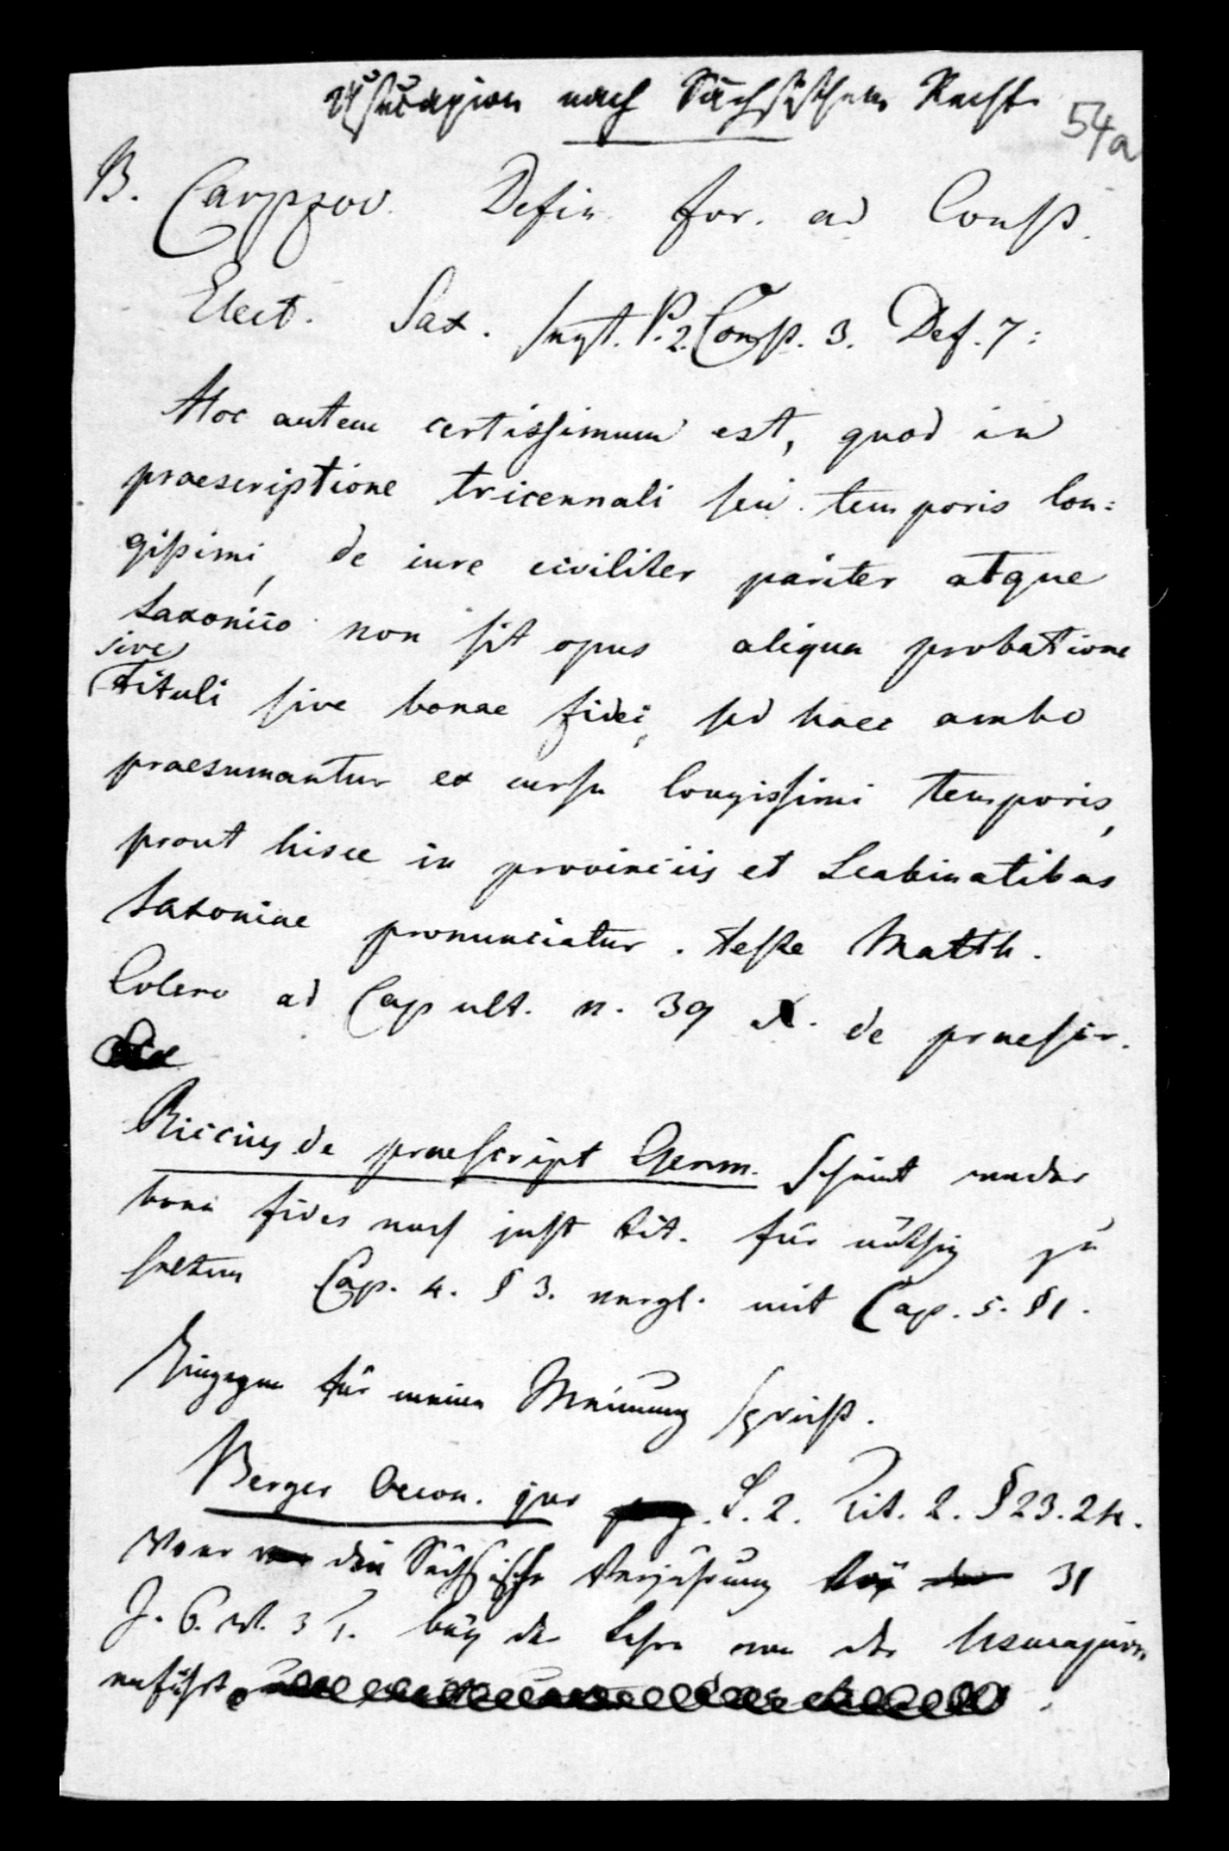 Usucapion nach Sächsischem Recht.
54a
B. Carpzov. Defin. for. ad Const.
Elect. Sax. P. 2. Const. 3. Def. 7:
Hoc autem certissimum est, quod in
praescriptione tricennali seu temporis lon=
gissimi, de iure civiliter pariter atque
saxonico non sit opus aliqua probatione
sive
tituli sive bonae fidei, sed haec ambo
praesumantur ex cursu longissimi temporis,
prout hisce in provinciis et Scabinatibus
Saxoniae pronunciatur. teste Matth.
Colero ad Cap ult. n. 39 X. de praescr.
Riccius de praescript Germ. scheint weder
bona fides noch just tit. für nöthig zu
halten Cap. 4. § 3. vergl. mit Cap. 5. § 1.
Hingegen für meine Meinung spricht.
Berger Oecon. jur L. 2. Tit. 2. § 23. 24.
die Sächsische Verjährung 31
J. 6. W. 3 T. bey der Lehre von der Usucapion
anführt